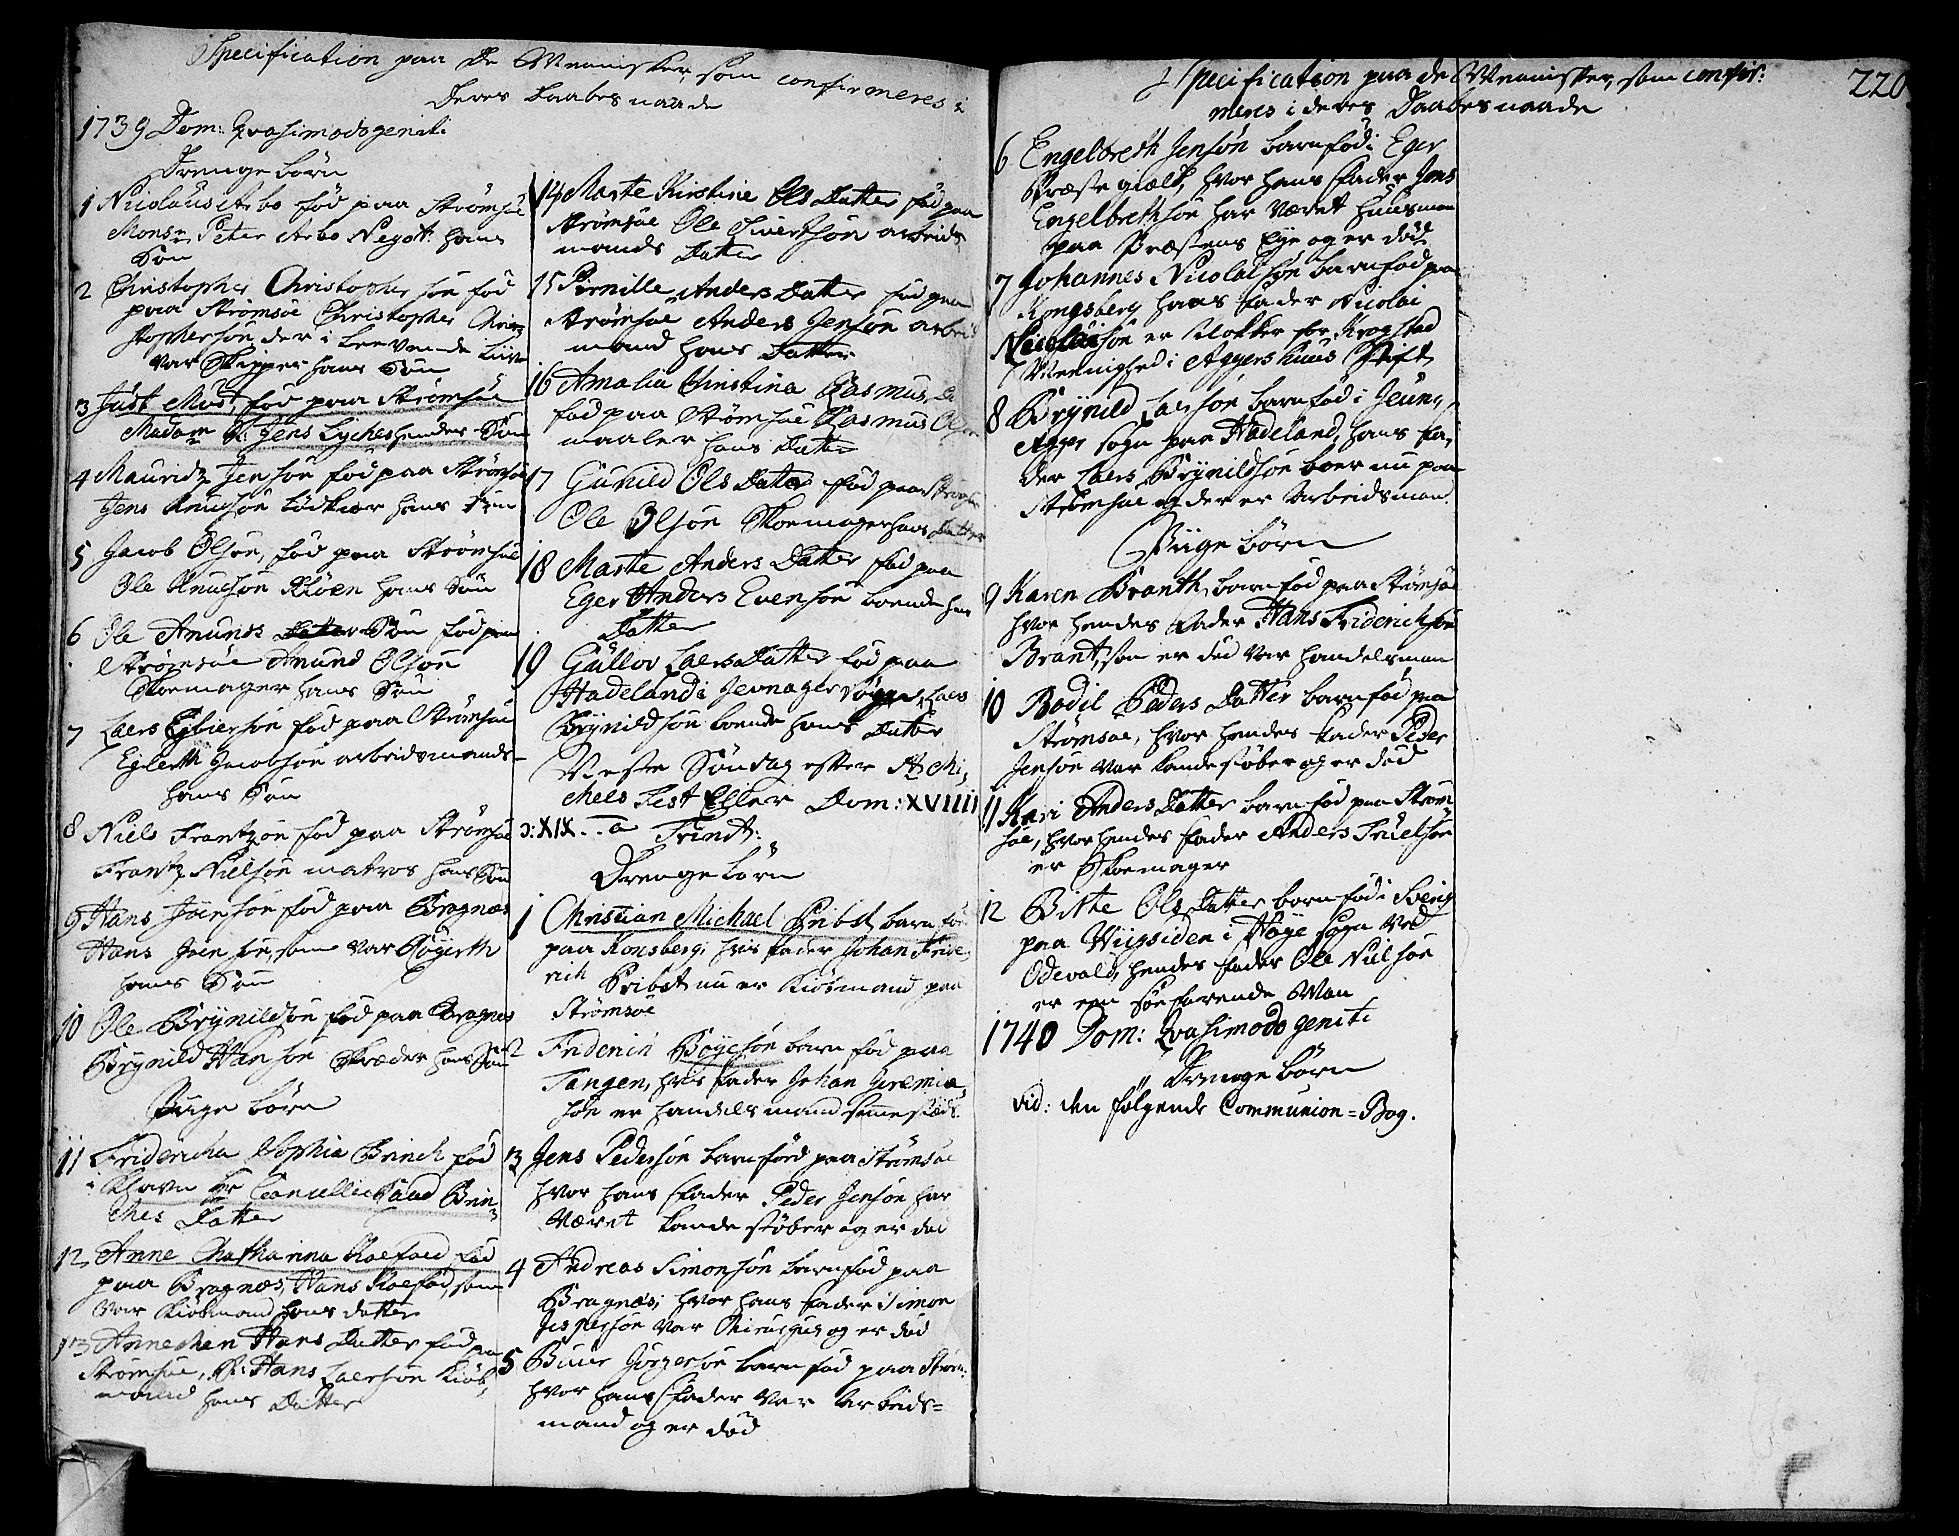 Specification paa de Mennisker, som confirmeres i
deres daabes naade
1739 Dom: Qvasimodogeniti
Drenge börn
1 Nicolaus Arbo föd paa Strömsöe
Monsr Peter Arbo Negot: hans
Sön
2 Christopher Christophersön föd
paa Strömsöe Christopher Chri-
stophersön, der i Leevende Liive
var Skipper hans Sön
3 Just Must, föd paa Strömsöe
Madam Sl: Jens Lyches hendes Sön
4 Mauridtz Jensön föd paa Strömsöe
Jens Knudsön Bödker hans Sön
5 Jacob Olsön, föd paa Strömsöe
Ole Knudsön hans Sön
6 Ole Amunds Datter Sön föd paa
Strömsöe Amund Olsön
Skoemager hans Sön
7 Laers Egbiersön föd paa Strömsöe
Eglerth Jacobsön arbeidsmands
hans Sön
8 Niels Frantzön föd paa Strömsöe
Frantz Nielsön matros hans Sön
9 Hans Joensön föd paa Bragnæs
Hans Joensön, som var
hans Sön
10 Ole Brynildsön föd paa Bragnes
Brynild Hansön Skræder hans Sön
Piige börn
11 Fridericha Sophia Brinch föd
i Khavn Hr Cancellie Raad Brin-
ches Datter
12 Anne Chatharina Koefoed föd
paa Bragnæs, Hans Koefod, som
var Kiöbmand hans datter
13 Annechen Hans Datter föd paa
Strömsöe, Sl: Hans Laersön Kiöb-
mand hans Datter
14 Marte Kirstine Ols Datter föd paa
Strömsöe Ole Siversön arbeids
mands Datter
15 Pernille Anders Datter föd paa
Strömsöe Anders Jensön arbeids
mand hans Datter
16 Amalia Christina Rasmus Da
föd paa Strömsöe Rasmus Olsön
maaler hans Datter
17 Gunild Ols Datter föd paa Strömsöe
Ole Olsön Skoemager hans Datter
18 Marte Anders Datter föd paa
Eger Anders Evensön boende hans
Datter
19 Gullov Laers Datter föd paa
Hadeland i Jevnager Sogn, Laers
Brynildsön boende hans Datter
Neste Söndag efter St Mi-
chels Fest Eller Dom: XVIIII
ɔ: XIX .. a Trinit:
Drenge börn
1 Christian Michael Pribst, barn föd
paa Konsberg, hvis fader Johan Fride-
rich Pribst nu er Kiöbmand paa
Strömsöe
2 Friderich Böyesön barn föd paa
Tangen, hvis fader Johan Jeremia-
sön er handels mand sammestæds
3 Jens Pedersön barn föd paa Strömsöe
hvor hans fader Peder Jensön har
været Kandestöber og er död
4 Andreas Simonsön barn föd paa
Bragnæs, hvor hans fader Simon
Jespersön var Chirurgus og er död
5 Jörgensön barn föd paa Ström:
hvor hans fader var Arbeids=
mand og er död
Specification paa de Mennisker, som confir:
meres i deres Daabes naade
220
6 Engelbreth Jensön barn föd i Eger
Præste gield, hvor hans fader Jens
Engelbrethsön har været huusman
paa Præstens Eye og er död
7 Johannes Nicolaisön barn föd paa
Kongsberg hans fader Nicolai
Nicolaisön er Klokker for Krogstad
Meenighed i Aggershuus Stift
8 Brynild Laersön barn föd i Jeun-
ager sogn paa Hadeland, hans fa-
der Laers Brynildsön boer nu paa
Strömsöe og der er Arbeidsman
Piige börn
9 Karen Branth, barn föd paa Strömsöe
hvor hendes fader Hans Friderichsön
Brant, som er död var handelsman
10 Bodil Peders Datter barn föd paa
Strömsöe, hvor hendes fader Peder
Jensön var kandestöber og er död
11 Kari Anders Datter barn föd paa Ström-
söe, hvor hendes fader Anders Truelsön
er Skoemager
12 Bitte Ols Datter barn föd i Sverig
paa Wiigsiden i Höye Sogn ved
Odevald, hendes fader Ole Nielsön
er een söefarende Man
1740 Dom: Qvasimodo geniti
Drenge börn
vid: den fölgende Communion=Bog.